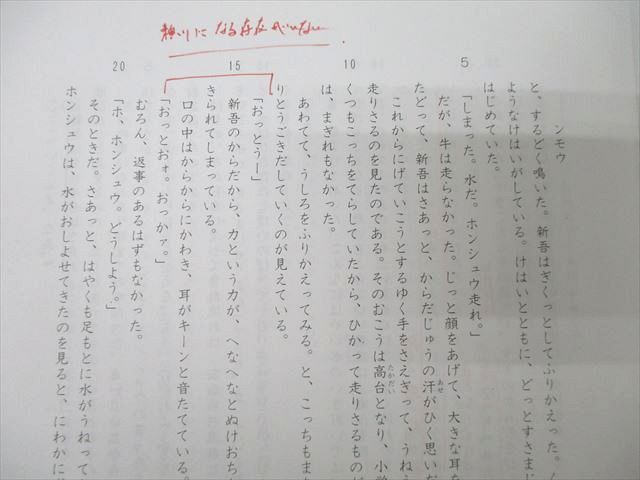 頼りになる存在がいない
ンモウ
と、するどく鳴いた。新吾はぎくっとしてふりかえった。
ようなけはいがしている。けはいとともに、どっとすさまじ
はじめていた。
5
「しまった。水だ。ホンシュウ走れ。」
だが、牛は走らなかった。じっと顔をあげて、大きな耳を
たどって、新吾はさあっと、からだじゅうの汗がひく思いだ
あせ
これからにげていこうとするゆく手をさえぎって、うね
走りさるのを見たのである。そのむこうは高台となり、小学
たかだい
10
くつもこっちをてらしていたから、ひかって走りさるものが
は、まぎれもなかった。
あわてて、うしろをふりかえってみる。と、こっちもまた
りとうごきだしていくのが見えている。
「おっとうー」
15
新吾のからだから、力という力が、へなへなとぬけおち
きられてしまっている。
口の中はからからにかわき、耳がキーンと音たてている。
「おっとォ。おっかァ。」
むろん、返事のあるはずもなかった。
20
「ホ、ホンシュウ。どうしよう。」
そのときだ。さあっと、はやくも足もとに水がうねって
ホンシュウは、水がおしよせてきたのを見ると、にわかに